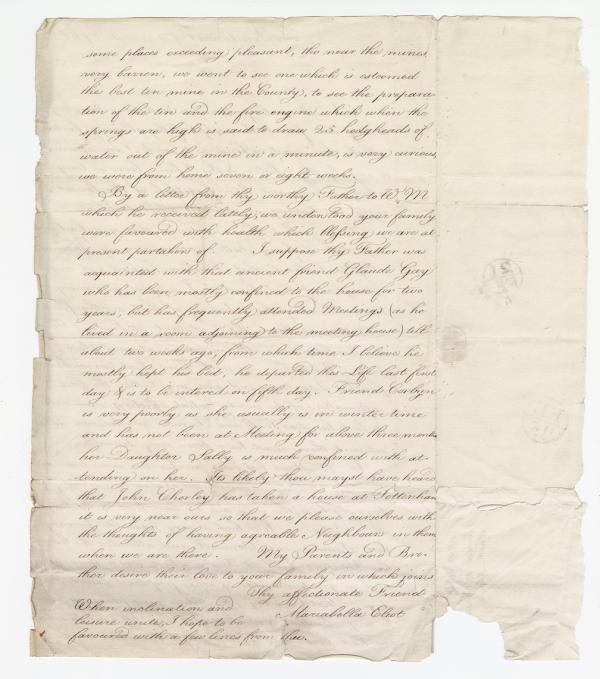 some places exceeding pleasant, tho near the mines
very barren, we went to see one which is esteemed
the best ten mine in the County, to see the prepara
tion of the tin and the fire engine which when the
springs are high is said to draw 23 hodgheads of
water out of the mine in a minute, is very curious,
we were from home seven or eight weeks.
By a letter from thy worthy Father to Wm M
which he received lately, we understood your family
were favoured with health which blessing we are at
present partakers of. I suppose thy Father was
acquainted with that ancient friend Glaude Gay
who has been mostly confined to the house for two
years, but has frequently attended Meetings (as he
lived in a room adjoining to the meeting house) till
about two weeks ago, from which time I believe he
mostly kept his bed, he departed this Life last first
day & is to be interred on fifth day. Friend Corbyn
is very poorly as she usually is in winter time
and has not been at Meeting for above three months
her Daughter Sally is much confined with at-
tending on her. Its likely thou mayst have heard
that John Chorley has taken a house at Tottenham
it is very near ours so that we please ourselves with
the thoughts of having agreable Neighbours in them
when we are there. My Parents and Bro-
ther desire their love to your family in which joins
Thy affectionate Friend
Mariabella Eliot
When inclination and
leisure unite, I hope to be
favoured with a few lines from thee.